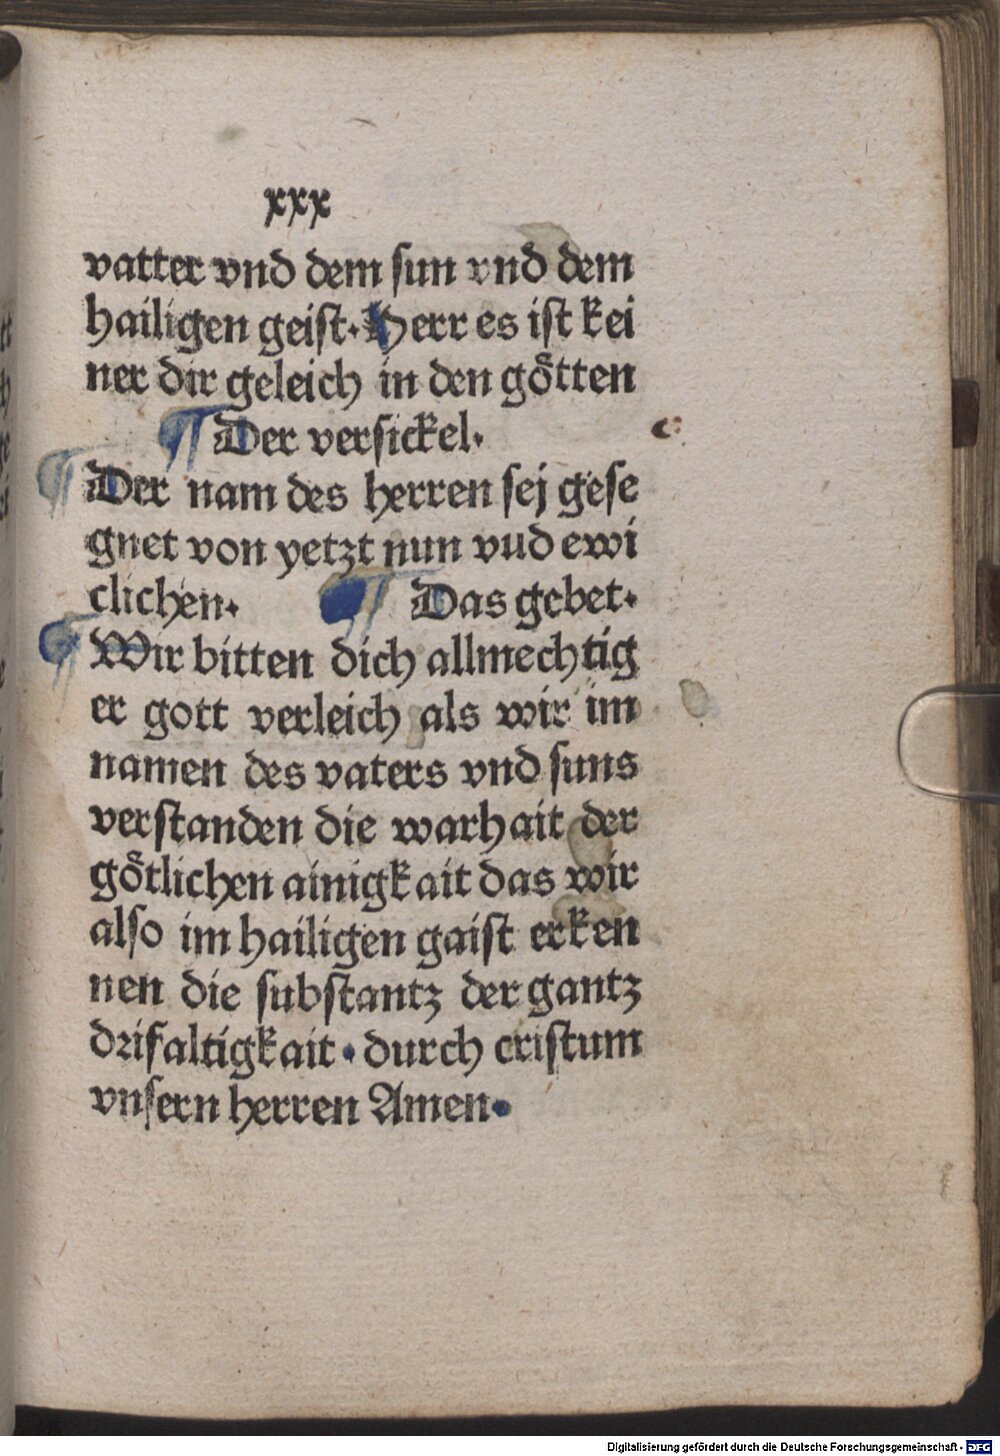 xxx
vatter vnd dem sun vnd dem
hailigen geist. Herr es ist kei
ner dir geleich in den goͤtten
¶ Der versickel.
¶ Der nam des herren sej gese
gnet von yetzt nun vud ewi
clichen. ¶ Das gebet.
¶ Wir bitten dich allmechtig
er gott verleich als wir im
namen des vaters vnd suns
verstanden die warhait der
goͤtlichen ainigkait das wir
also im hailigen gaist erken
nen die substantz der gantz
drifaltigkait. durch cristum
vnsern herren Amen.
Digitalisierung gefördert durch die Deutsche Forschungsgemeinschaft - DFG